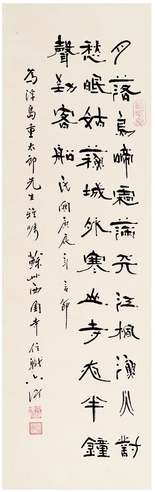 月落烏啼霜滿天江楓漁火對
愁眠姑蘇城外寒山寺夜半鐘
聲到客船
民國庚辰年
為浮島重太郎先生雅
蘇州西園寺住職六